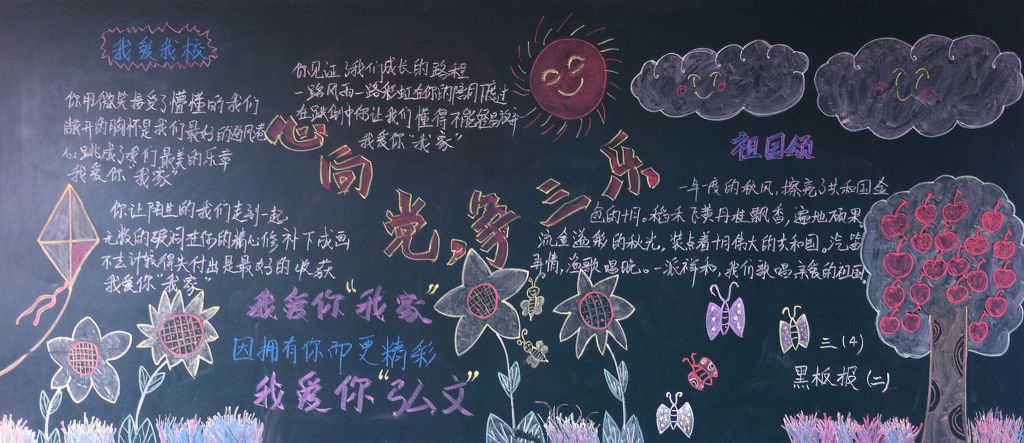 我爱我校
你用微笑接受了懵懂的我们
敞开的胸怀是我们最好的
心跳成了我们最美的乐章
我爱你“我家”
你见证了我们成长的路程
一路风雨一路彩虹在你的陪同下度过
在跌倒中你让我们懂得不能轻易放弃
我爱你“我家”
你让陌生的我们走到一起
无数的破洞在你的精心修补下成画
不去计较得失付出是最好的收获
我爱你“我家”
心向党,争三乐
我爱你“我家”
因拥有你而更精彩
我爱你“弘文”
祖国颂
一年一度的秋风,擦亮了共和国金
色的十月。稻禾飞黄丹桂飘香,遍地硕果
流金溢彩的秋光,装点着十月伟大的共和国。汽笛
声情,渔歌唱晚。一派祥和,我们歌唱亲爱的祖国
三(4)
黑板报(二)